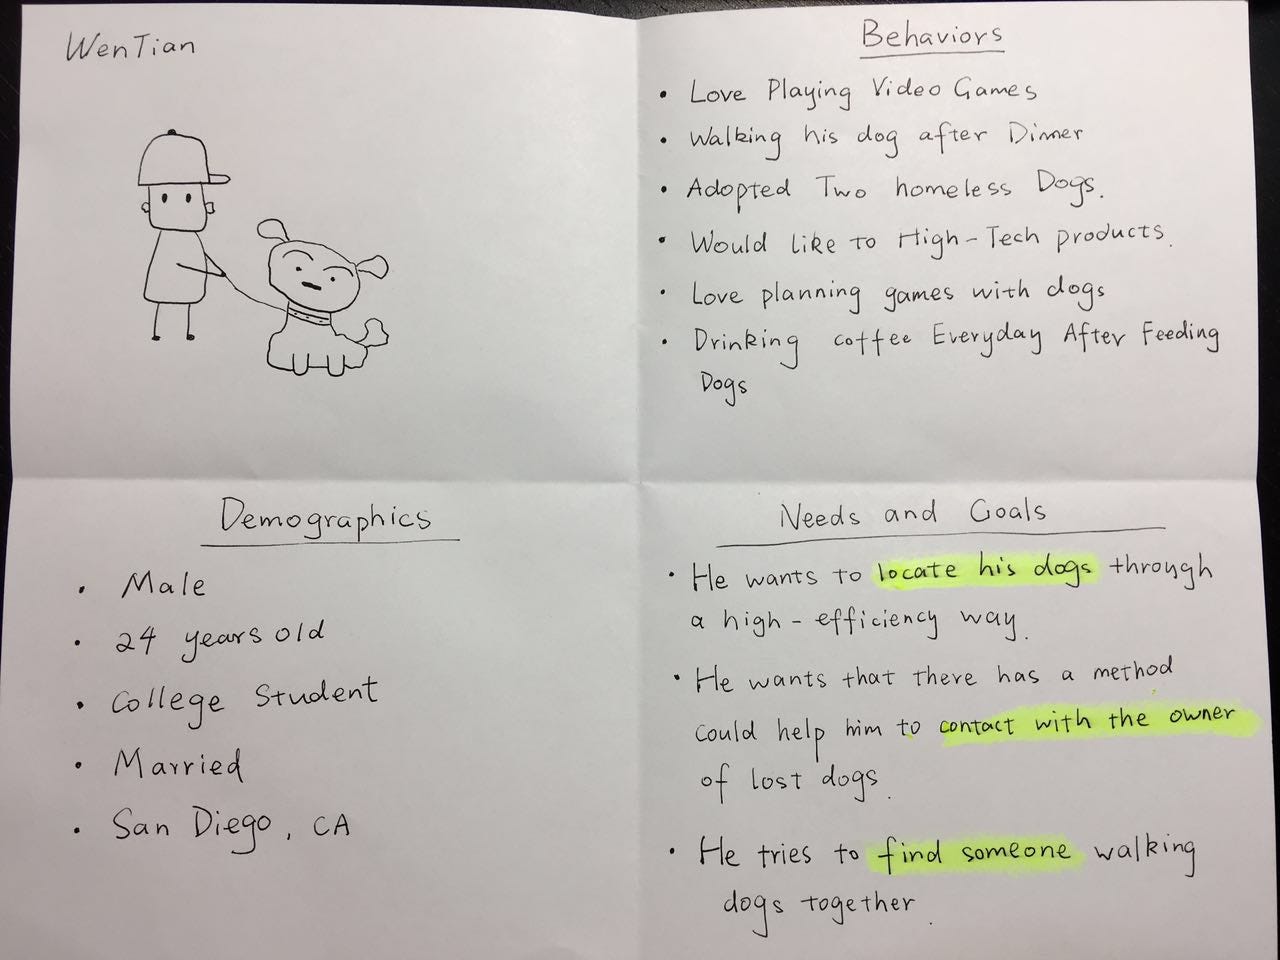 WenTian
Behaviors
• Love Playing Video Games
• Walking his dog after Dinner
• Adopted Two homeless Dogs.
• Would like to High-Tech products.
• Love planning games with dogs
• Drinking coffee Everyday After Feeding
Dogs
Demographics
• Male
• 24 years old
• College Student
• Married
• San Diego, CA
Needs and Goals
• He wants to locate his dogs through
a high-efficiency way.
• He wants that there has a method
could help him to contact with the owner
of lost dogs.
• He tries to find someone walking
dogs together.